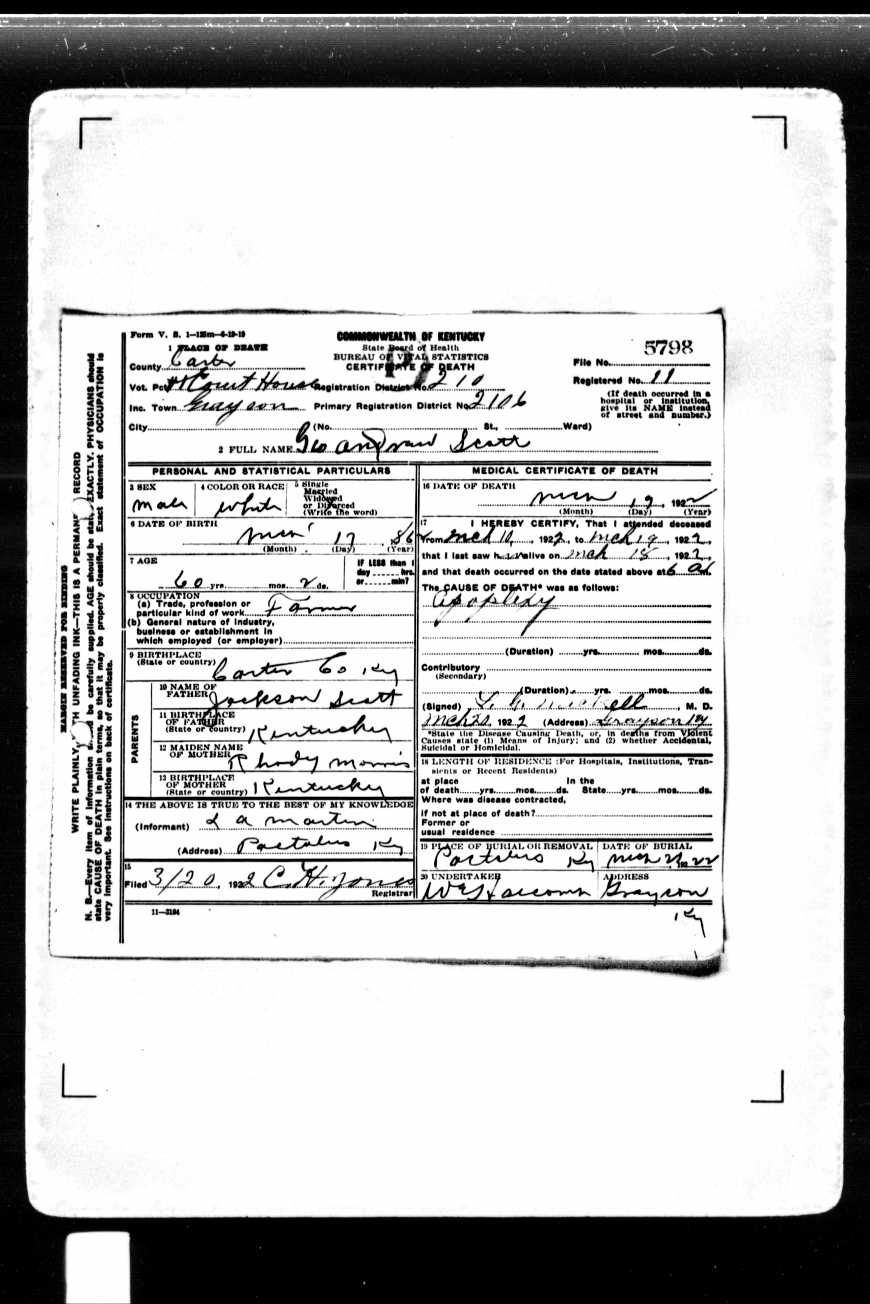 Form V. S. 1—125m—6-19-19
COMMONWEALTH OF KENTUCKY
State Board of Health
BUREAU OF VITAL STATISTICS
CERTIFICATE OF DEATH
1 PLACE OF DEATH
County Carter
Vot. Pct. Court House Registration District No. 210
Inc. Town Grayson Primary Registration District No. 2106
City (No. St., Ward)
File No. 5798
Registered No. 11
(If death occurred in a
hospital or institution,
give its NAME instead
of street and number.)
2 FULL NAME Geo Andrew Scott
PERSONAL AND STATISTICAL PARTICULARS
3 SEX
Male
4 COLOR OR RACE
White
5 Single
Married
Widowed
or Divorced
(Write the word)
6 DATE OF BIRTH
Mch 17
(Month) (Day) (Year)
7 AGE
60 yrs. mos. 2 ds.
IF LESS than 1
day hrs.
or min?
8 OCCUPATION
(a) Trade, profession or
particular kind of work Farmer
(b) General nature of industry,
business or establishment in
which employed (or employer)
9 BIRTHPLACE
(State or country) Carter Co Ky
PARENTS
10 NAME OF
FATHER Jackson Scott
11 BIRTHPLACE
OF FATHER
(State or country) Kentucky
12 MAIDEN NAME
OF MOTHER Rhody Morris
13 BIRTHPLACE
OF MOTHER
(State or country) Kentucky
14 THE ABOVE IS TRUE TO THE BEST OF MY KNOWLEDGE
(Informant) L A Martin
(Address) Pactolus Ky
15
Filed 3/20, 1922 C. H. Jones
Registrar
11—3184
MEDICAL CERTIFICATE OF DEATH
16 DATE OF DEATH
Mch 19, 1922
(Month) (Day) (Year)
17 I HEREBY CERTIFY, That I attended deceased
from Mch 10, 1922, to Mch 19, 1922,
that I last saw him alive on Mch 18, 1922,
and that death occurred on the date stated above at 6 a.m.
The CAUSE OF DEATH* was as follows:
Apoplexy
(Duration) yrs. mos. ds.
Contributory
(Secondary)
(Duration) yrs. mos. ds.
(Signed) M. D.
Mch 20, 1922 (Address) Grayson Ky
*State the Disease Causing Death, or, in deaths from Violent
Causes state (1) Means of Injury; and (2) whether Accidental,
Suicidal or Homicidal.
18 LENGTH OF RESIDENCE (For Hospitals, Institutions, Tran-
sients or Recent Residents)
at place In the
of death yrs. mos. ds. State yrs. mos. ds.
Where was disease contracted,
if not at place of death?
Former or
usual residence
19 PLACE OF BURIAL OR REMOVAL
Pactolus Ky
DATE OF BURIAL
Mch 21, 1922
20 UNDERTAKER
ADDRESS
Grayson
Ky
MARGIN RESERVED FOR BINDING
WRITE PLAINLY, WITH UNFADING INK—THIS IS A PERMANENT RECORD
N. B.—Every item of information should be carefully supplied. AGE should be stated EXACTLY. PHYSICIANS should
state CAUSE OF DEATH in plain terms, so that it may be properly classified. Exact statement of OCCUPATION is
very important. See instructions on back of certificate.